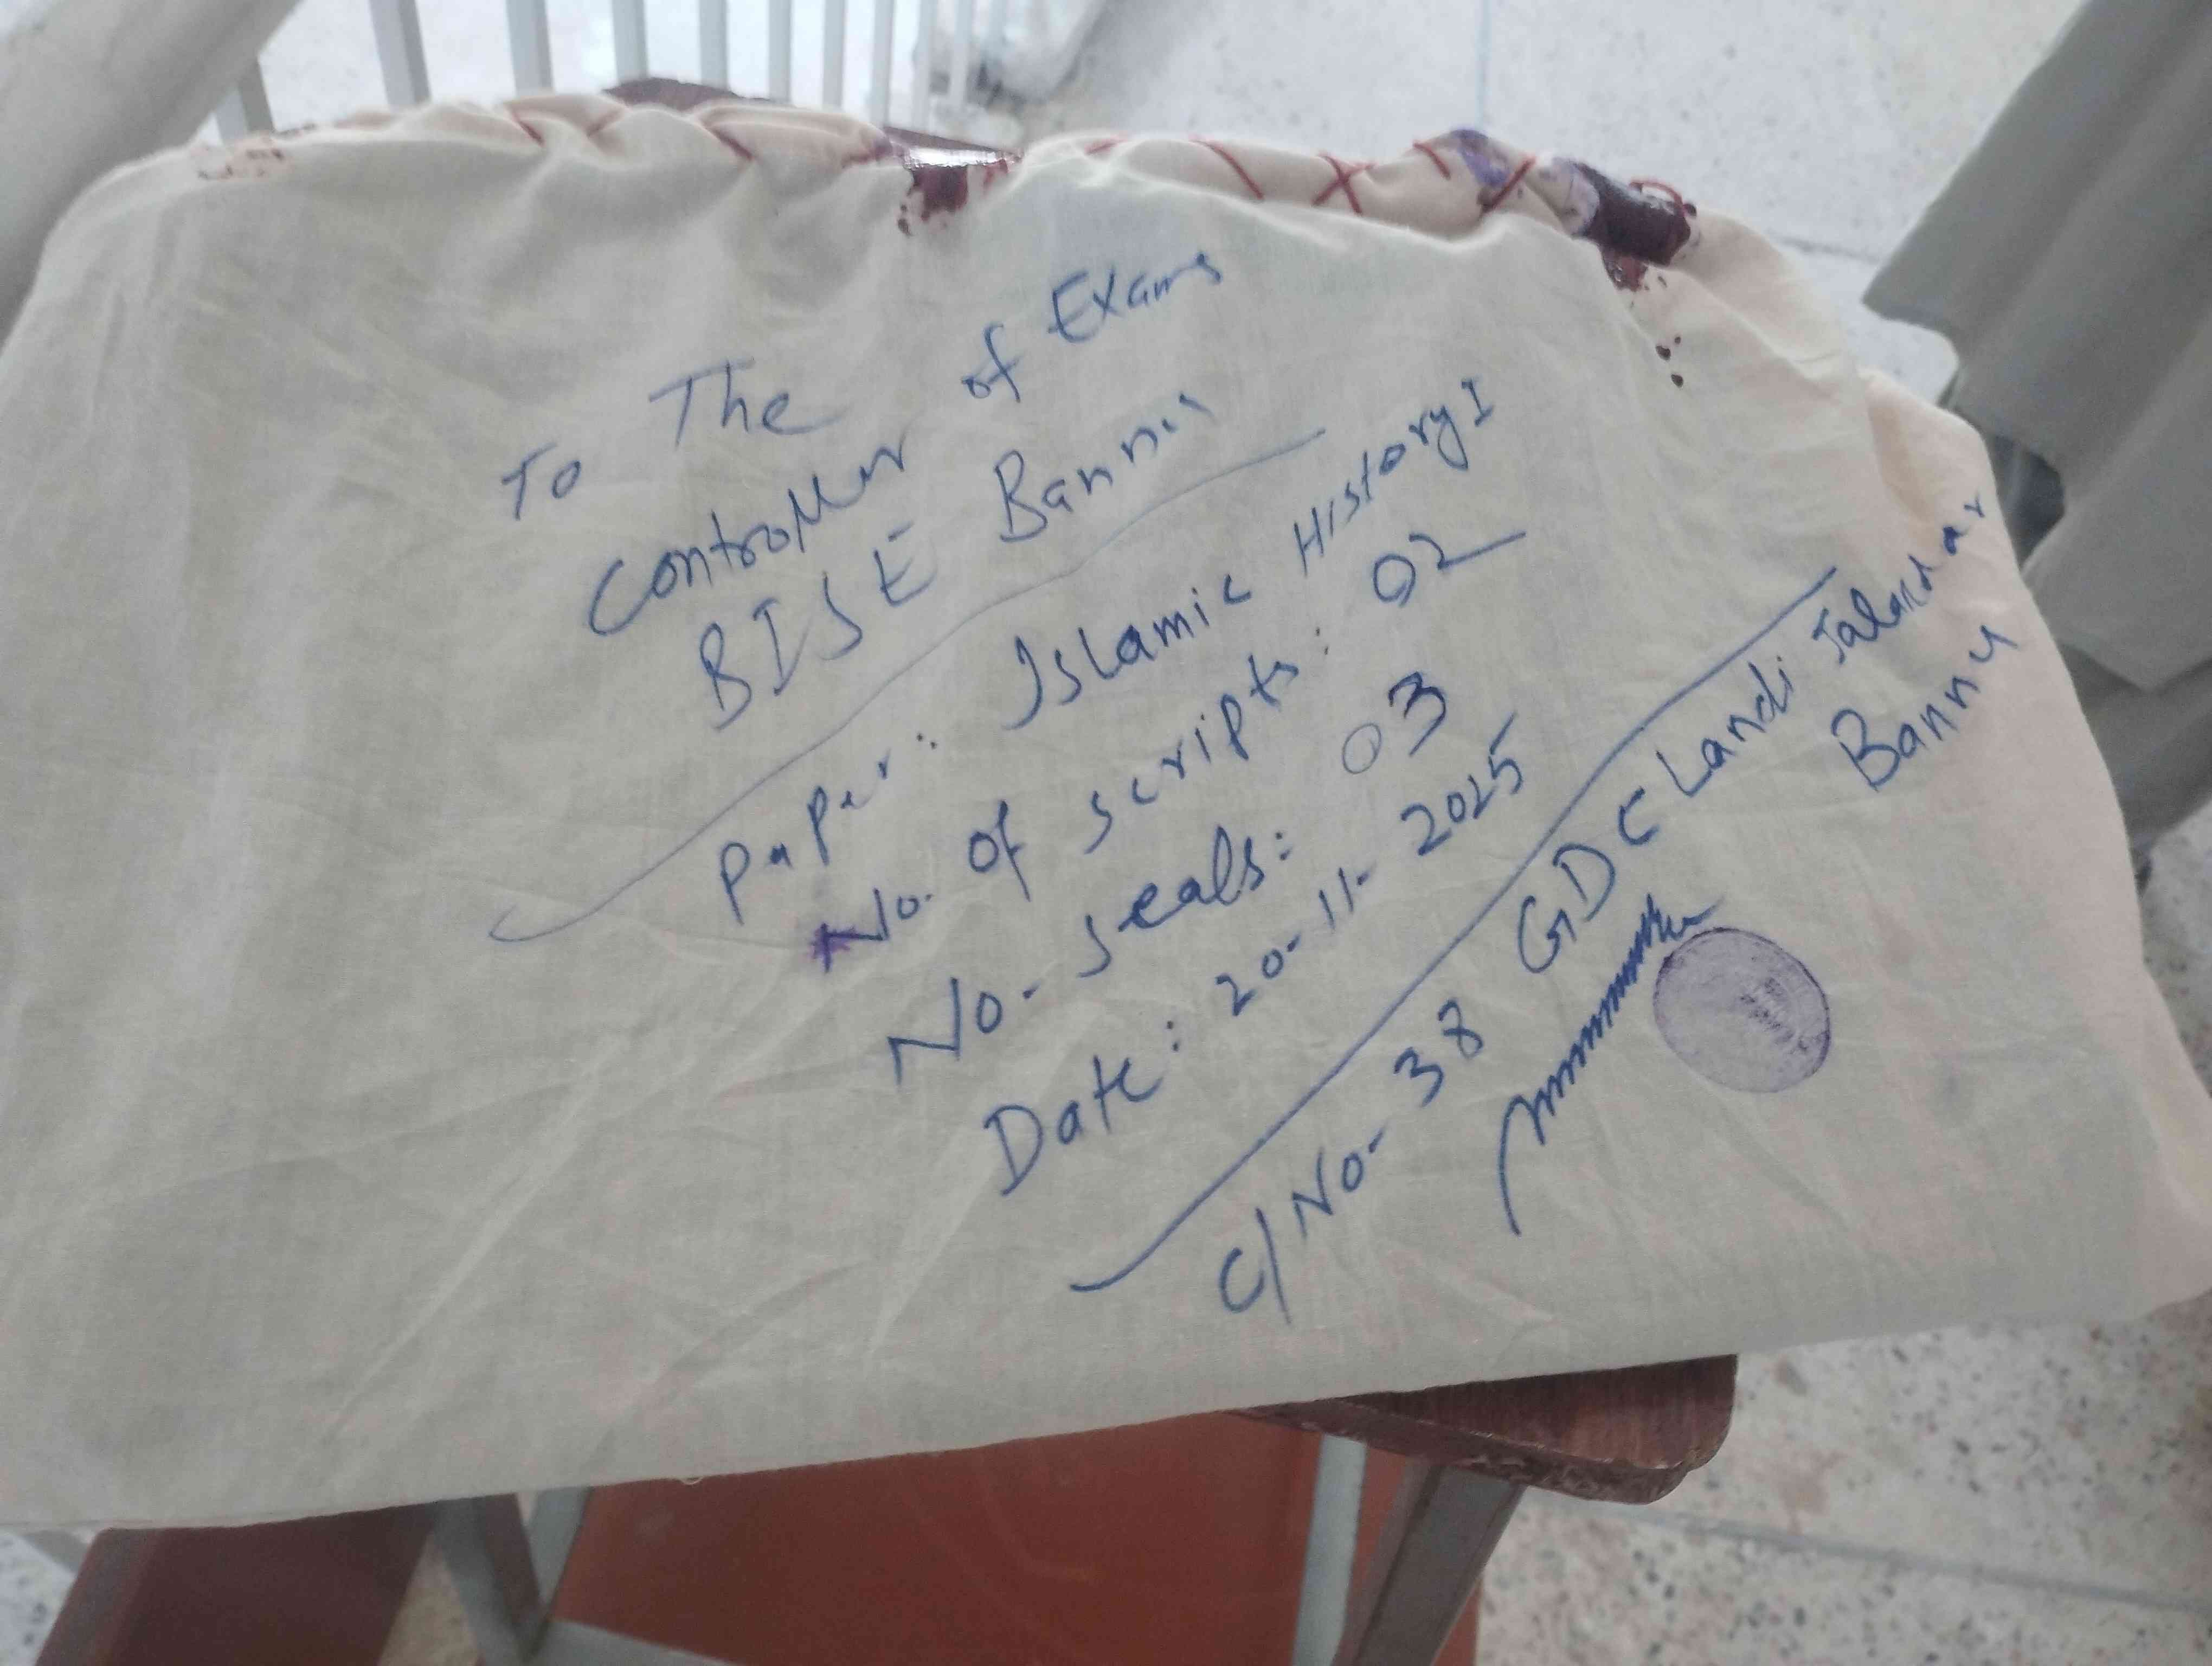 To The
Controller of Exams
BISE Bannu
Paper: Islamic History I
No. of scripts: 02
No- seals: 03
Date: 20-11-2025
C/No- 38 GDC Landi Jalandar
Bannu